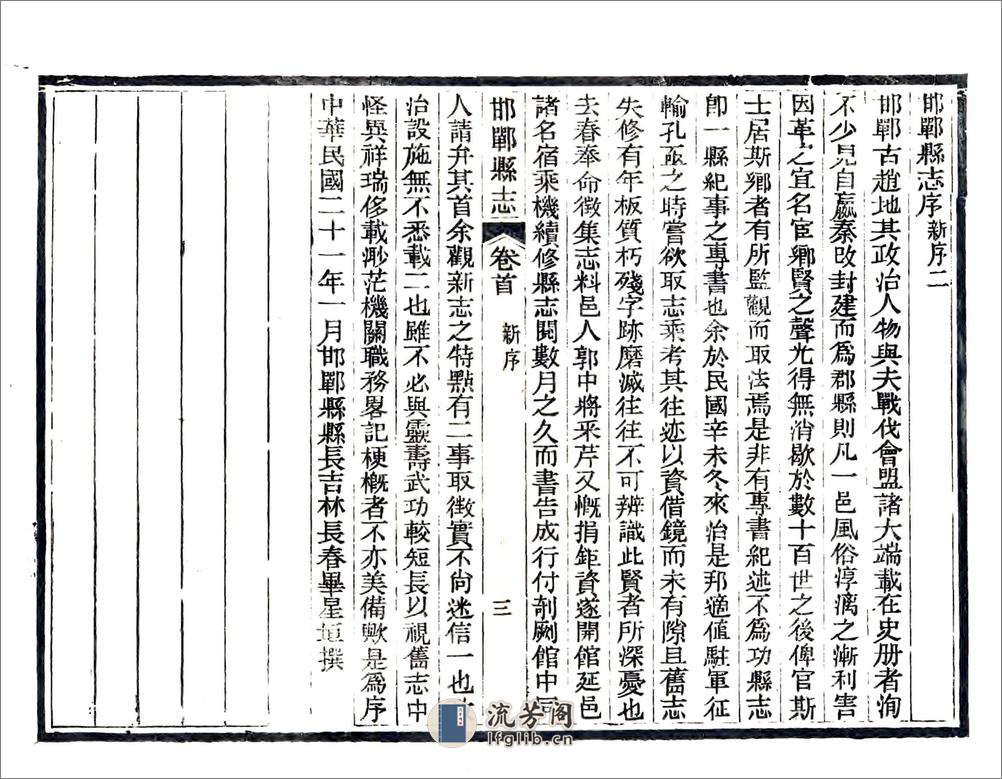 邯鄲縣志序新序二
邯鄲古趙地其政治人物與夫戰伐會盟諸大端載在史册者洵
不少見自嬴秦改封建而為郡縣則凡一邑風俗淳漓之漸利害
因革之宜名宦鄉賢之聲光得無消歇於數十百世之後俾官斯
士居斯鄉者有所監觀而取法焉是非有專書紀述不為功縣志
卽一縣紀事之專書也余於民國辛未冬來治是邦適值駐軍征
輸孔亟之時嘗欲取志乘考其往迹以資借鏡而未有隙且舊志
失修有年板質朽殘字跡磨滅往往不可辨識此賢者所深憂也
去春奉命徵集志料邑人郭中將釆芹又慨捐鉅資遂開館延邑
諸名宿乘機續修縣志閱數月之久而書告成行付剞劂館中同
邯鄲縣志 卷首 新序 三
人請弁其首余觀新志之特點有二事取徵實不尙迷信一也
治設施無不悉載二也雖不必與靈壽武功較短長以視舊志中
怪異祥瑞侈載渺茫機關職務畧記梗概者不亦美備歟是為序
中華民國二十一年一月邯鄲縣縣長吉林長春畢星垣撰
流芳阁
lfglib.cn